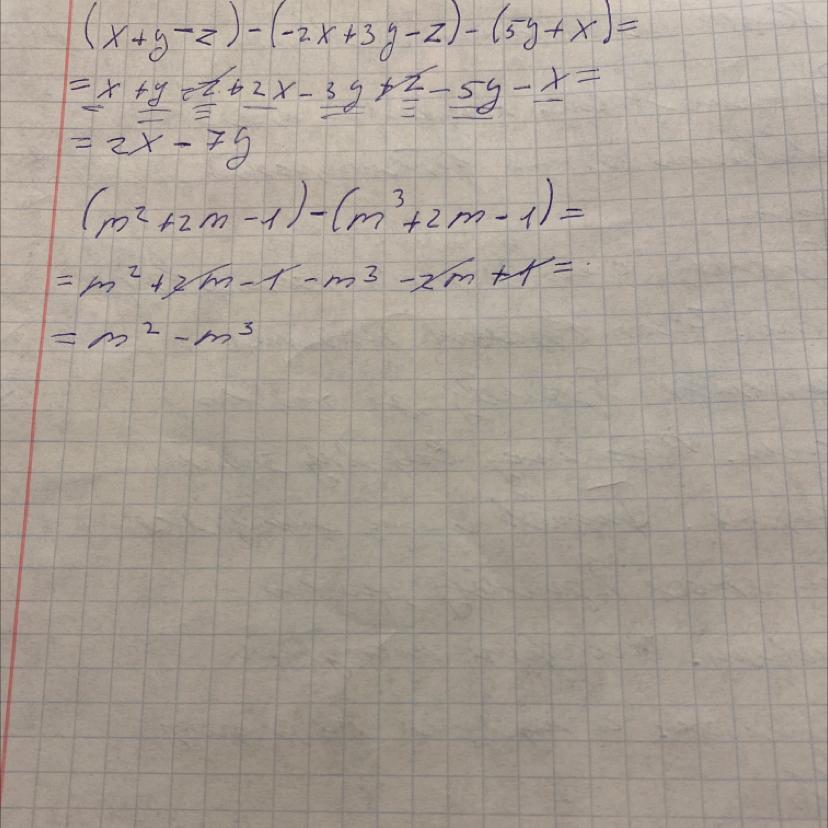 (x+y-z)-(-2x+3y-z)-(5y+x)=
=x+y-z+2x-3y+z-5y-x=
=2x-7y
(m²+2m-1)-(m³+2m-1)=
=m²+2m-1-m³-2m+1=
=m²-m³